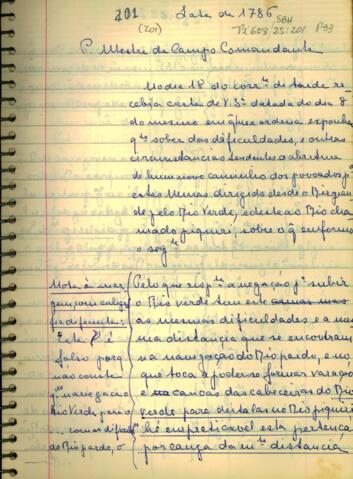 201 Lata de 1786
(201) SBH
Pi 608/25:201 P33
P. Mestre de Campo Comandante
No dia 18 do corr.te de tarde re-
cebi a carta de V. S.a datada do dia 8
do mesmo em q̃ me ordena exponha
q.to sober das dificuldades, e outras
circunstancias tendentes a abertura
de hum novo caminho dos povoados p.a
estas Minas dirigido desde o Rio gran-
de pelo Rio Verde, e deste ao Rio cha-
mado piquiri, sobre o q̃ enformo
o seg.te
Nota à mar-
gem com caligra-
fia diferente:
"Este § é
falso porq
não consta
q.do navegacao
Rio Verde, pera o
... com as dific.
do Rio pardo, o
Pelo que resp.ta a negação p.a subir
o Rio verde tem este
as mesmas dificuldades e a mes-
ma distancia que se encontram
na navegação do Rio pardo, e no
que toca a poderse formar varação
e canoas das cabeceiras do Rio
verde para destalas no Rio piquiri
hé empreticavel esta pertença
por cauza da m.ta distancia